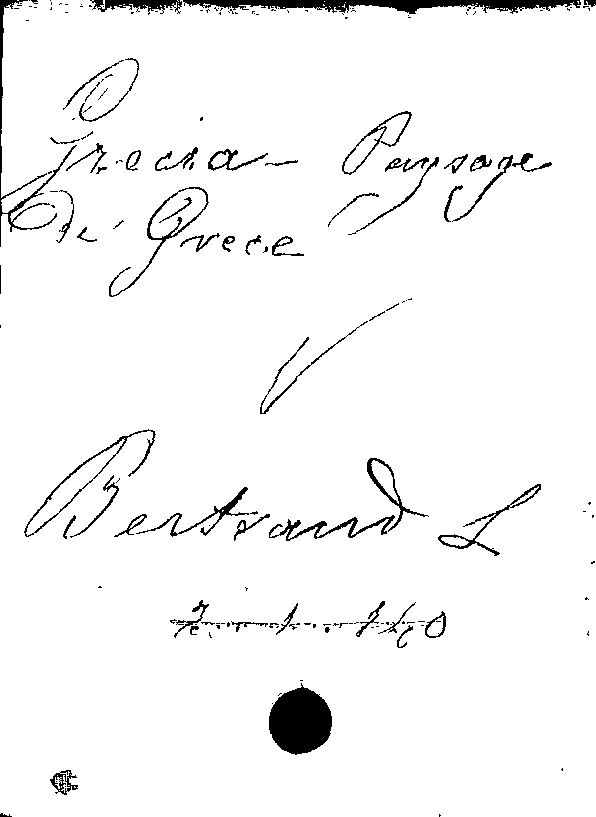 Grecia - Paysage
De Grece
V
Bertrand L
7. . 1 . 740